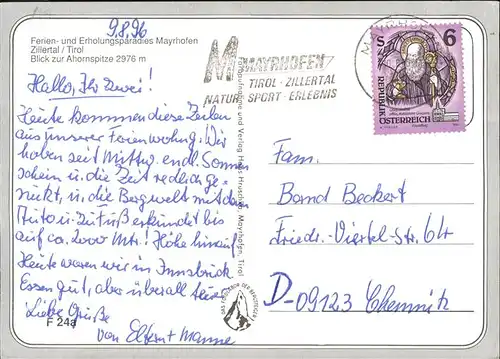 9.8.96
Ferien- und Erholungsparadies Mayrhofen
Zillertal / Tirol
Blick zur Ahornspitze 2976 m
Hallo, Ihr Zwei!
Heute kommen diese Zeilen
aus unserer Ferienwohng. Wir
haben seit Mittw. endl. Sonnen
schein u. die Zeit redlich ge-
nutzt, u. die Bergwelt mit dem
Auto u. zu Fuß erkundet bis
auf ca. 2000 Mtr! Höhe hinauf
Heute waren wir in Innsbruck
Essen gut, aber überall teuer
Liebe Grüße
F 24a
von Eltern +
MAYRHOFEN
TIROL · ZILLERTAL
NATUR SPORT · ERLEBNIS
MAYRHOF
S 6
REPUBLIK
ÖSTERREICH
Mayrhofen, Tirol
Fam.
Bernd Beckert
Friedr.-Viertel-Str. 64
D-09123 Chemnitz